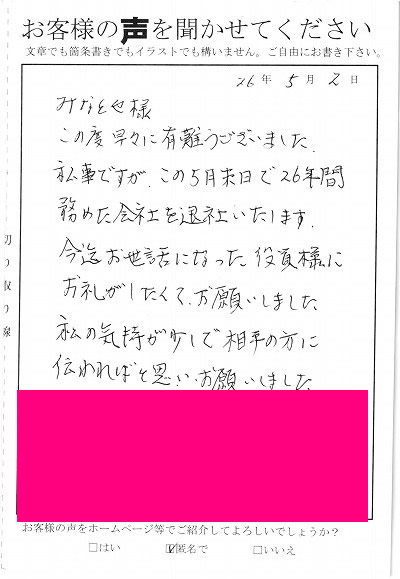 お客様の声を聞かせてください
文章でも箇条書きでもイラストでも構いません。ご自由にお書き下さい。
26年 5月 2日
みなとや様
この度早々に有難うございました.
私事ですが、この5月末日で26年間
務めた会社を退社いたします.
今迄お世話になった役員様に
お礼がしたくて、お願いしました
私の気持が少しで相手の方に
伝わればと思い、お願いしました
切り取り線
お客様の声をホームページ等でご紹介してよろしいでしょうか?
□はい ☑匿名で □いいえ